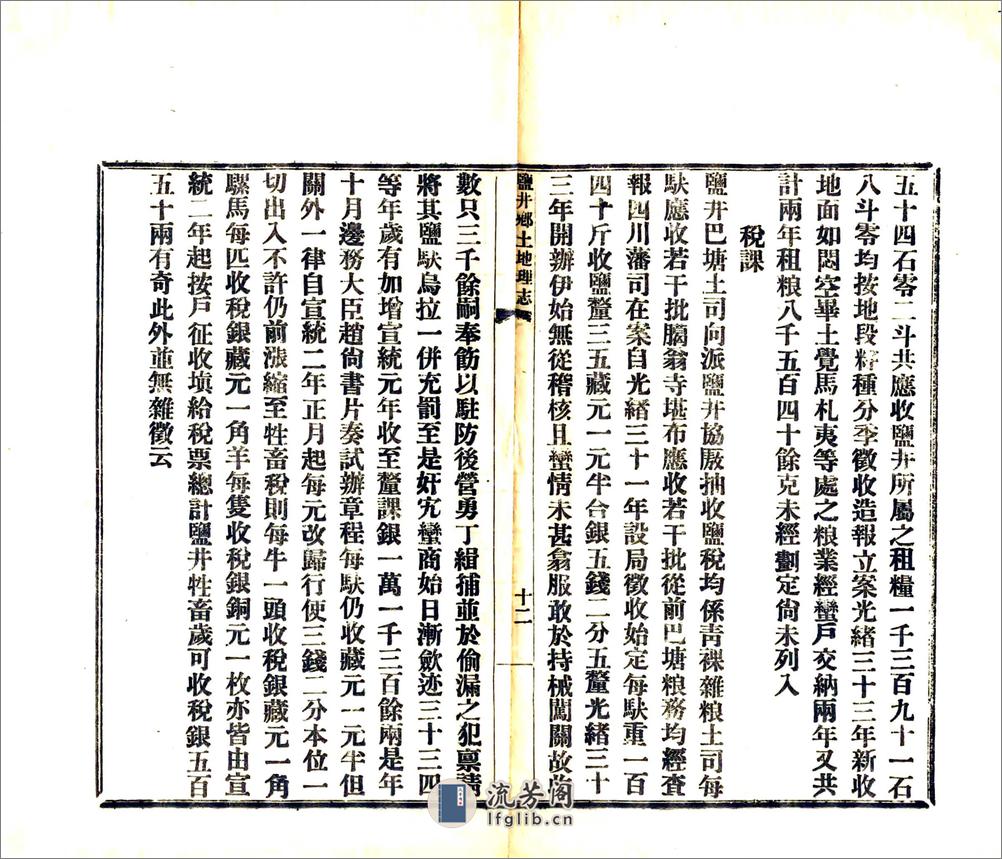 五十四石零二斗共應收鹽井所屬之租糧一千三百九十一石
八斗零均按地段籽種分季徵收造報立案光緒三十三年新收
地面如悶空畢土覺馬札夷等處之粮業經蠻戶交納兩年又共
計兩年租粮八千五百四十餘克未經劃定尙未列入
稅課
鹽井巴塘土司向派鹽井協廒抽收鹽稅均係靑稞雜粮土司每
䭾應收若干批臈翁寺堪布應收若干批從前巴塘粮務均經查
報四川藩司在案自光緒三十一年設局徵收始定每䭾重一百
四十斤收鹽釐三五藏元一元半合銀五錢二分五釐光緒三十
三年開辦伊始無從稽核且蠻情未甚翕服敢於持械闖關故收
鹽井鄉土地理志
十二
數只三千餘嗣奉飭以駐防後營勇丁緝捕並於偷漏之犯禀請
將其鹽䭾烏拉一併充罰至是奸宄蠻商始日漸歛迹三十三四
等年歲有加增宣統元年收至釐課銀一萬一千三百餘兩是年
十月邊務大臣趙尙書片奏試辦章程每䭾仍收藏元一元半但
關外一律自宣統二年正月起每元改歸行使三錢二分本位一
切出入不許仍前漲縮至牲畜稅則每牛一頭收稅銀藏元一角
騾馬每匹收稅銀藏元一角羊每隻收稅銀銅元一枚亦皆由宣
統二年起按戶征收塡給稅票總計鹽井牲畜歲可收稅銀五百
五十兩有奇此外並無雜徵云
流芳阁
lfglib.cn